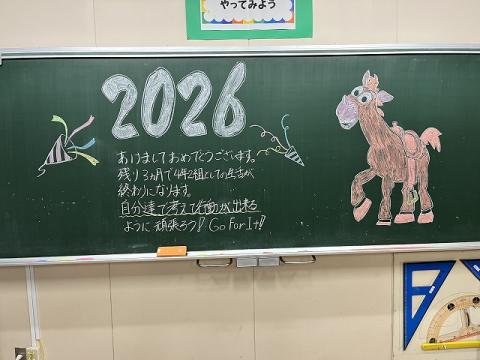 やってみよう
2026
あけましておめでとうございます。
残り3ヵ月で4年2組としての生活が
終わりになります。
自分達で考えて行動が出来る
ように頑張ろう!! Go For It!!